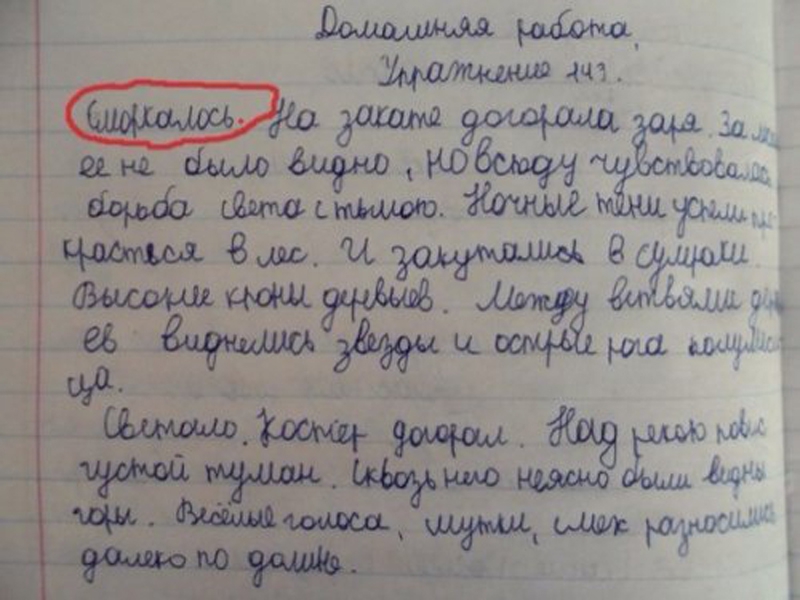 Домашняя работа.
Упражнение 143.
Сморкалось. На закате догорала заря. За
ее не было видно, но всюду чувствовалась
борьба света с тьмою. Ночные тени успели про
красться в лес. И закутались в сумраки.
Высокие крони деревьев. Между ветвями дер
ев виднелись звезды и острые рога полумеся
ца.
Светало. Костер догорал. Над рекою повис
густой туман. Сквозь него неясно были видны
горы. Весёлые голоса, шутки, смех разносились
далеко по долине.